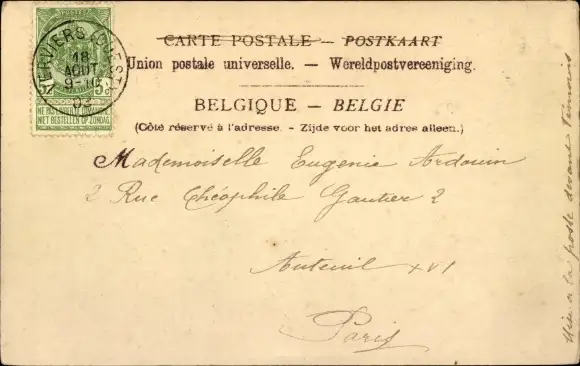 CARTE POSTALE — POSTKAART
Union postale universelle. — Wereldpostvereeniging.
BELGIQUE — BELGIE
(Côté réservé à l'adresse. - Zijde voor het adres alleen.)
VERVIERS (OUEST)
18
AOUT
POSTES
5
5
NE PAS LIVRER LE DIMANCHE
NIET BESTELLEN OP ZONDAG
Mademoiselle Eugenie Ardouin
2 Rue Théophile Gautier 2
Auteuil XVI
Paris
Mise à la poste devant témoins